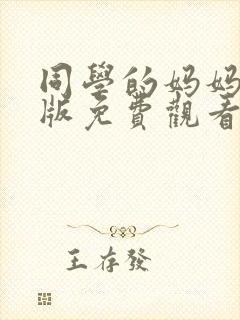 同學的妈妈
版免費觀看
王存發